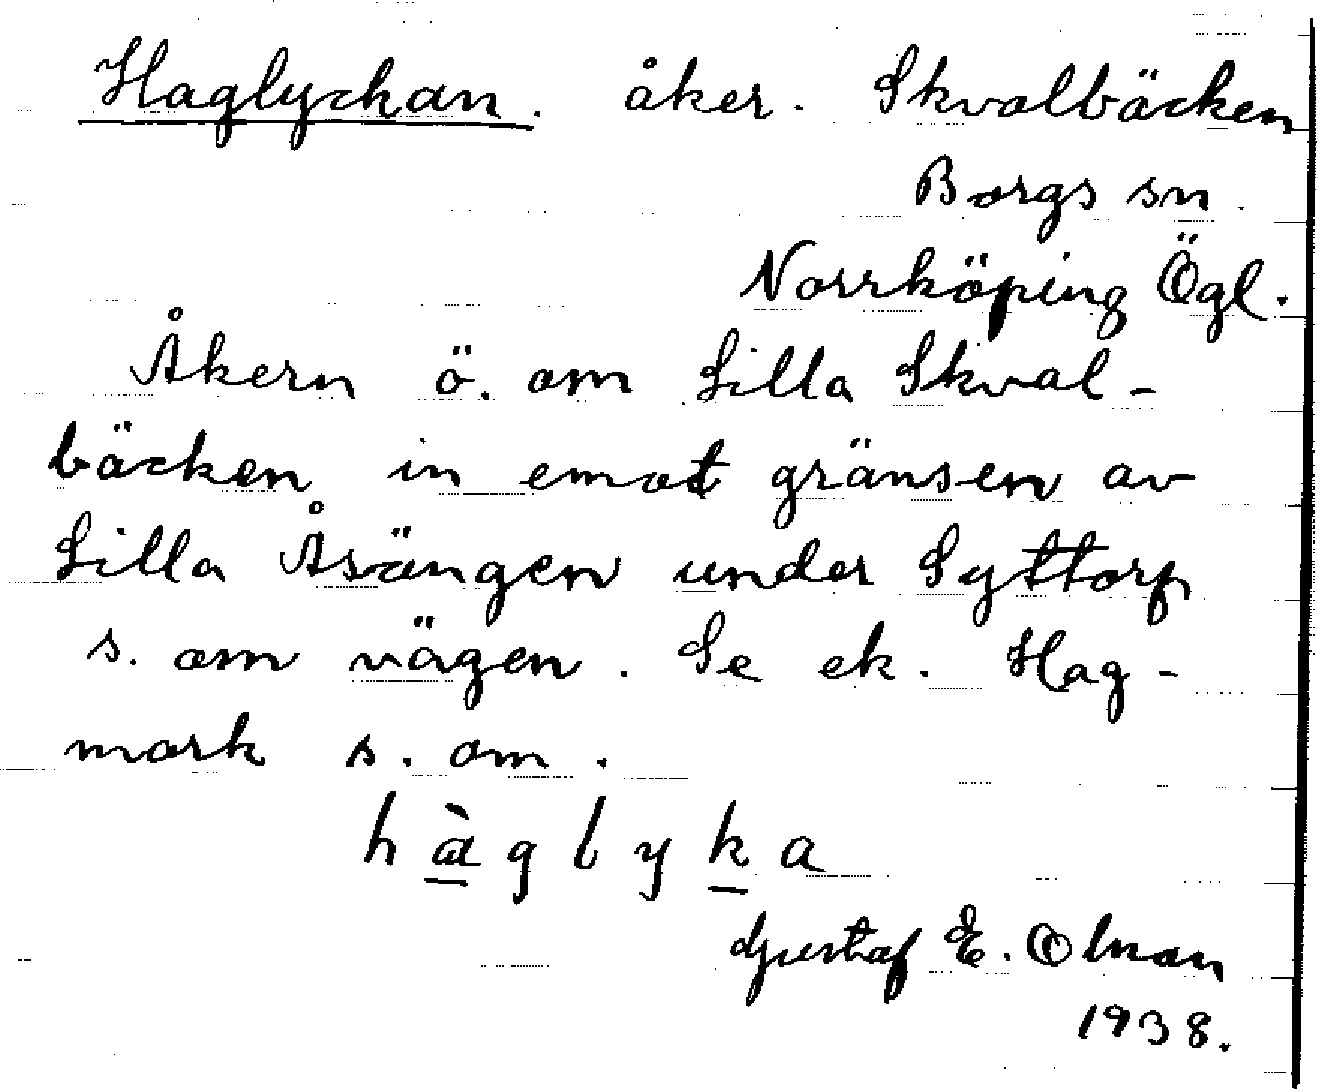 Haglyckan. åker. Skvalbäcken
Borgs sn.
Norrköping Ögl.
Åkern ö. om Lilla Skval-
bäcken in emot gränsen av
Lilla Åsängen under Syttorp
s. om vägen. Se ek. Hag-
mark s. om.
hàglyka
Gustaf E. Olman
1938.